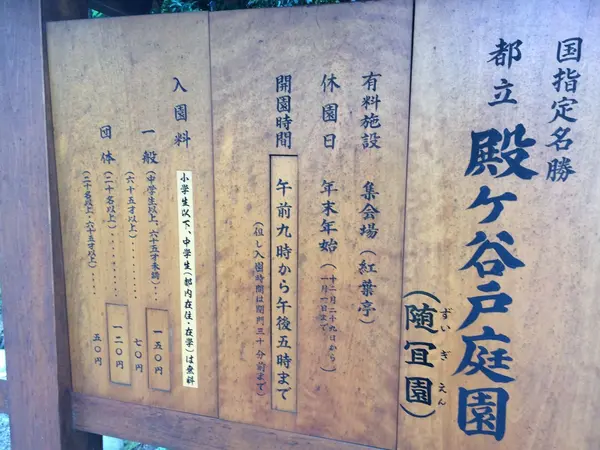 国指定名勝
都立 殿ヶ谷戸庭園
(随冝園)
ずいぎえん
有料施設 集会場(紅葉亭)
休園日 年末年始(十二月二十九日から
一月一日まで)
開園時間 午前九時から午後五時まで
(但し入園時間は閉門三十分前まで)
入園料 小学生以下、中学生(都内在住・在学)は無料
一般(中学生以上、六十五才未満)‥‥ 一五〇円
(六十五才以上)‥‥‥‥ 七〇円
団体(二十名以上)‥‥‥‥ 一二〇円
(二十名以上・六十五才以上)‥‥ 五〇円